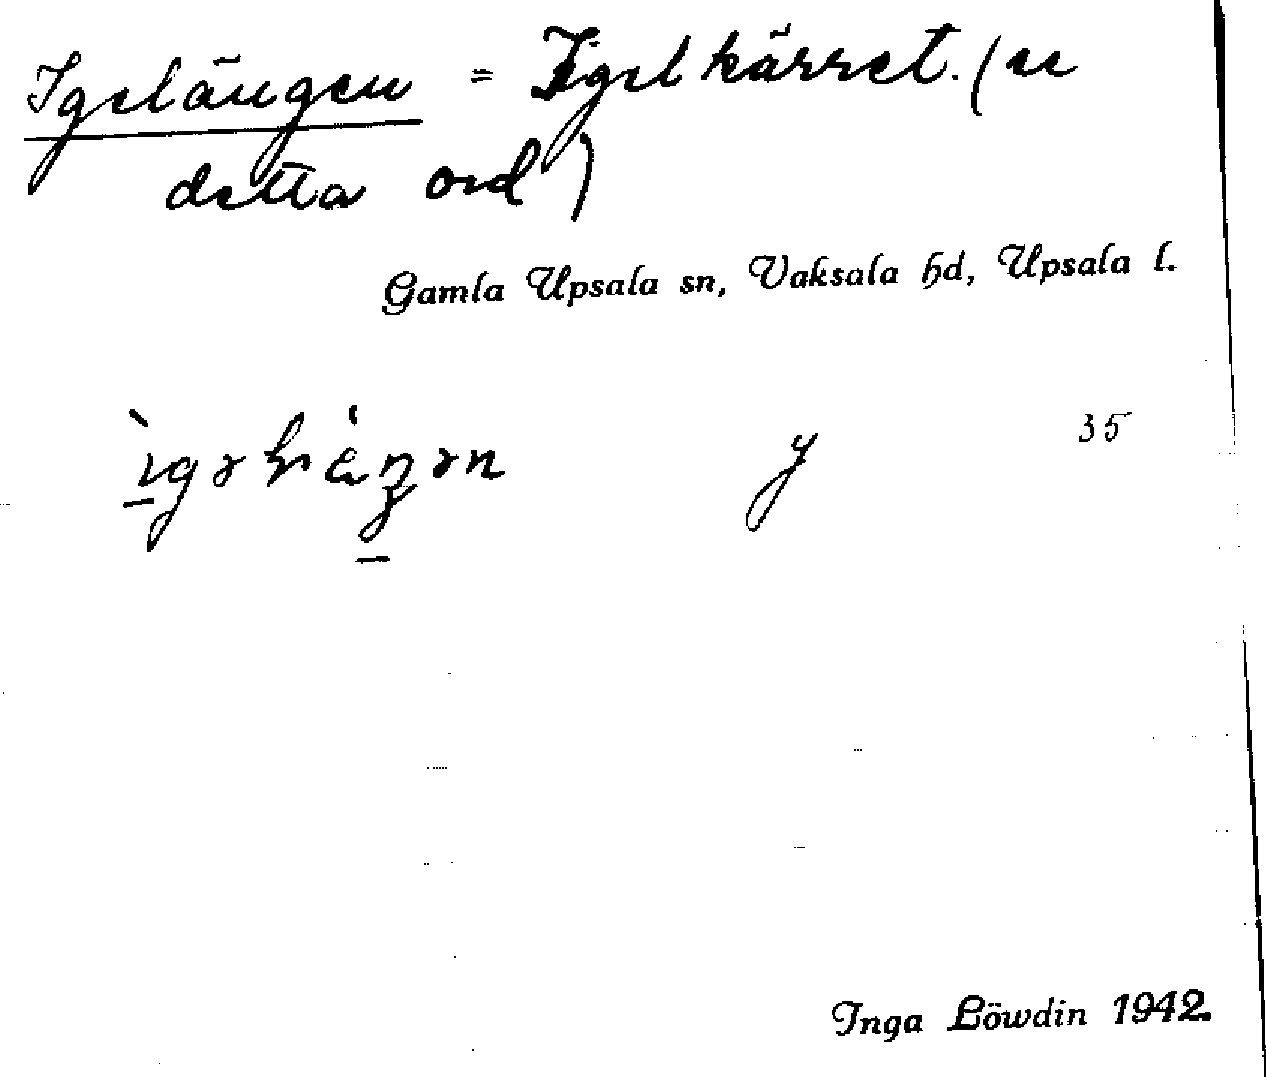 Igelängen = Igelkärret. (se
detta ord)
Gamla Upsala sn, Vaksala hd, Upsala l.
y 35
Inga Löwdin 1942.